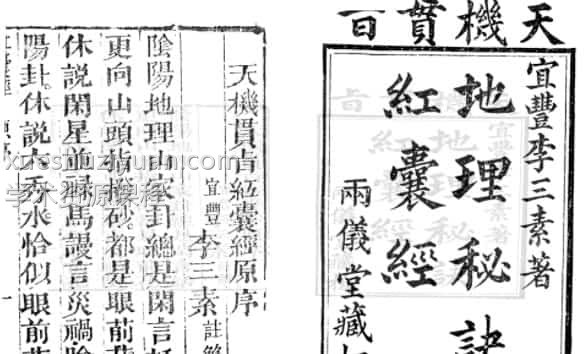 天機貫旨
宜豐李三素著
地理秘訣
紅囊經
兩儀堂藏
天機貫旨紅囊經原序
宜豐 李三素 註
陰陽地理山家卦總是閑言
更向山頭 砂都是眼前
休說閑星並祿馬謾言災禍
陽卦休說 秀水恰似眼前
一
学术资源课程